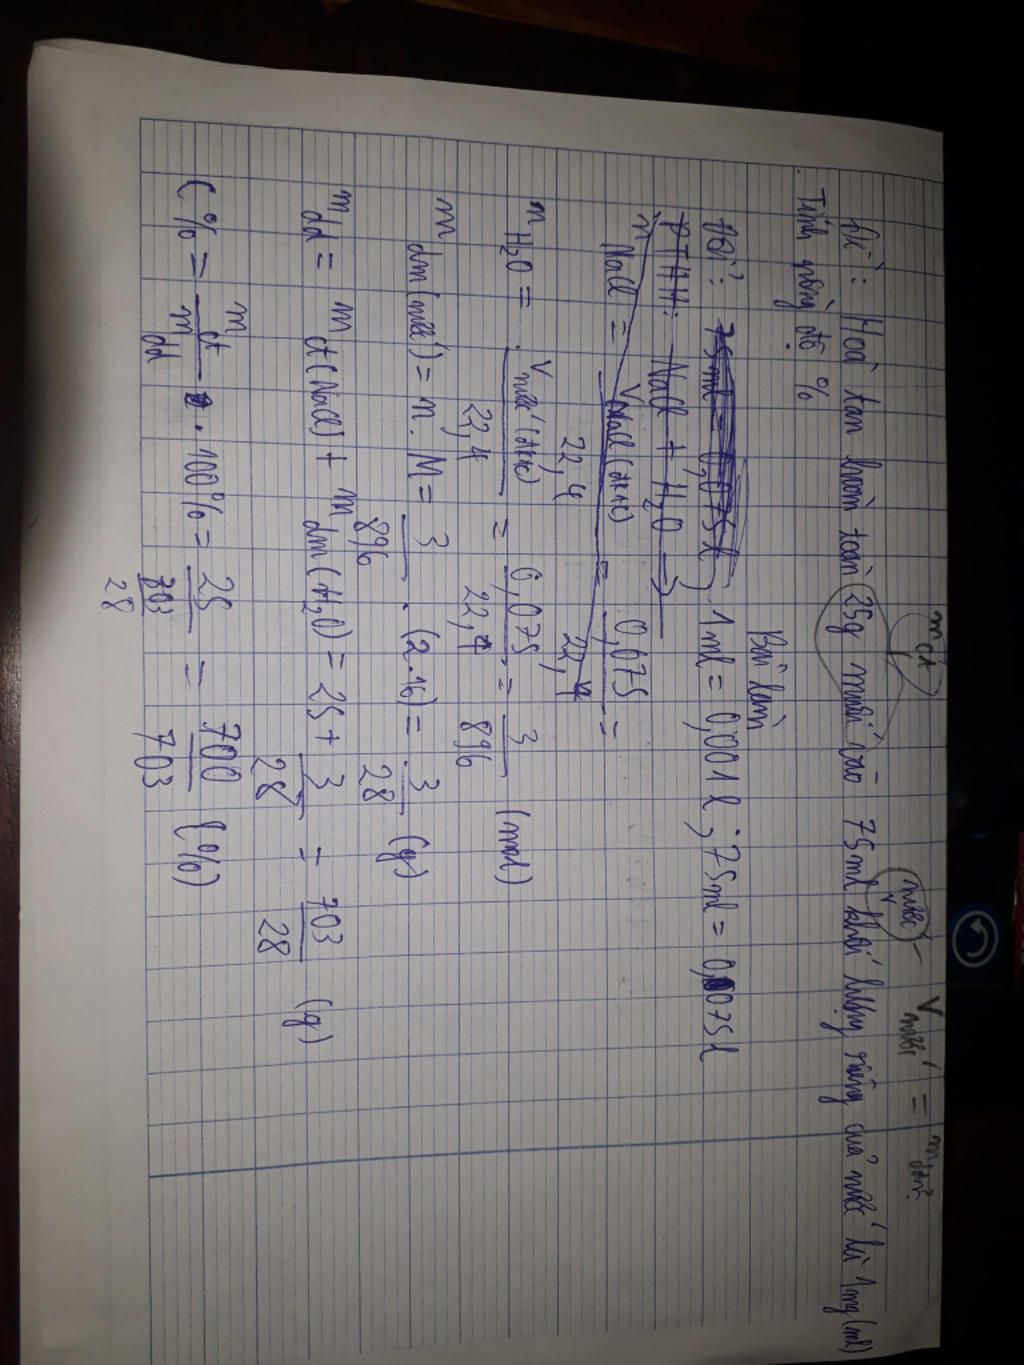 mct
nước
Vnước = mdm?
Đề: Hoà tan hoàn toàn 25g muối vào 75ml khối lượng riêng của nước là 1mg (ml)
Tính nồng độ %
Bài làm
Đổi: 75ml = 0,075l, 1ml = 0,001 l ; 75ml = 0,075l
PTHH: NaCl + H₂O →
nNaCl = VNaCl(đktc) / 22,4 = 0,075 / 22,4 =
nH₂O = Vnước(đktc) / 22,4 = 0,075 / 22,4 = 3/896 (mol)
mdm(nước) = n.M = 3/896 . (2.16) = 3/28 (g)
mdd = mct(NaCl) + mdm(H₂O) = 25 + 3/28 = 703/28 (g)
C% = mct/mdd . 100% = 25 / 703/28 = 700/703 (%)